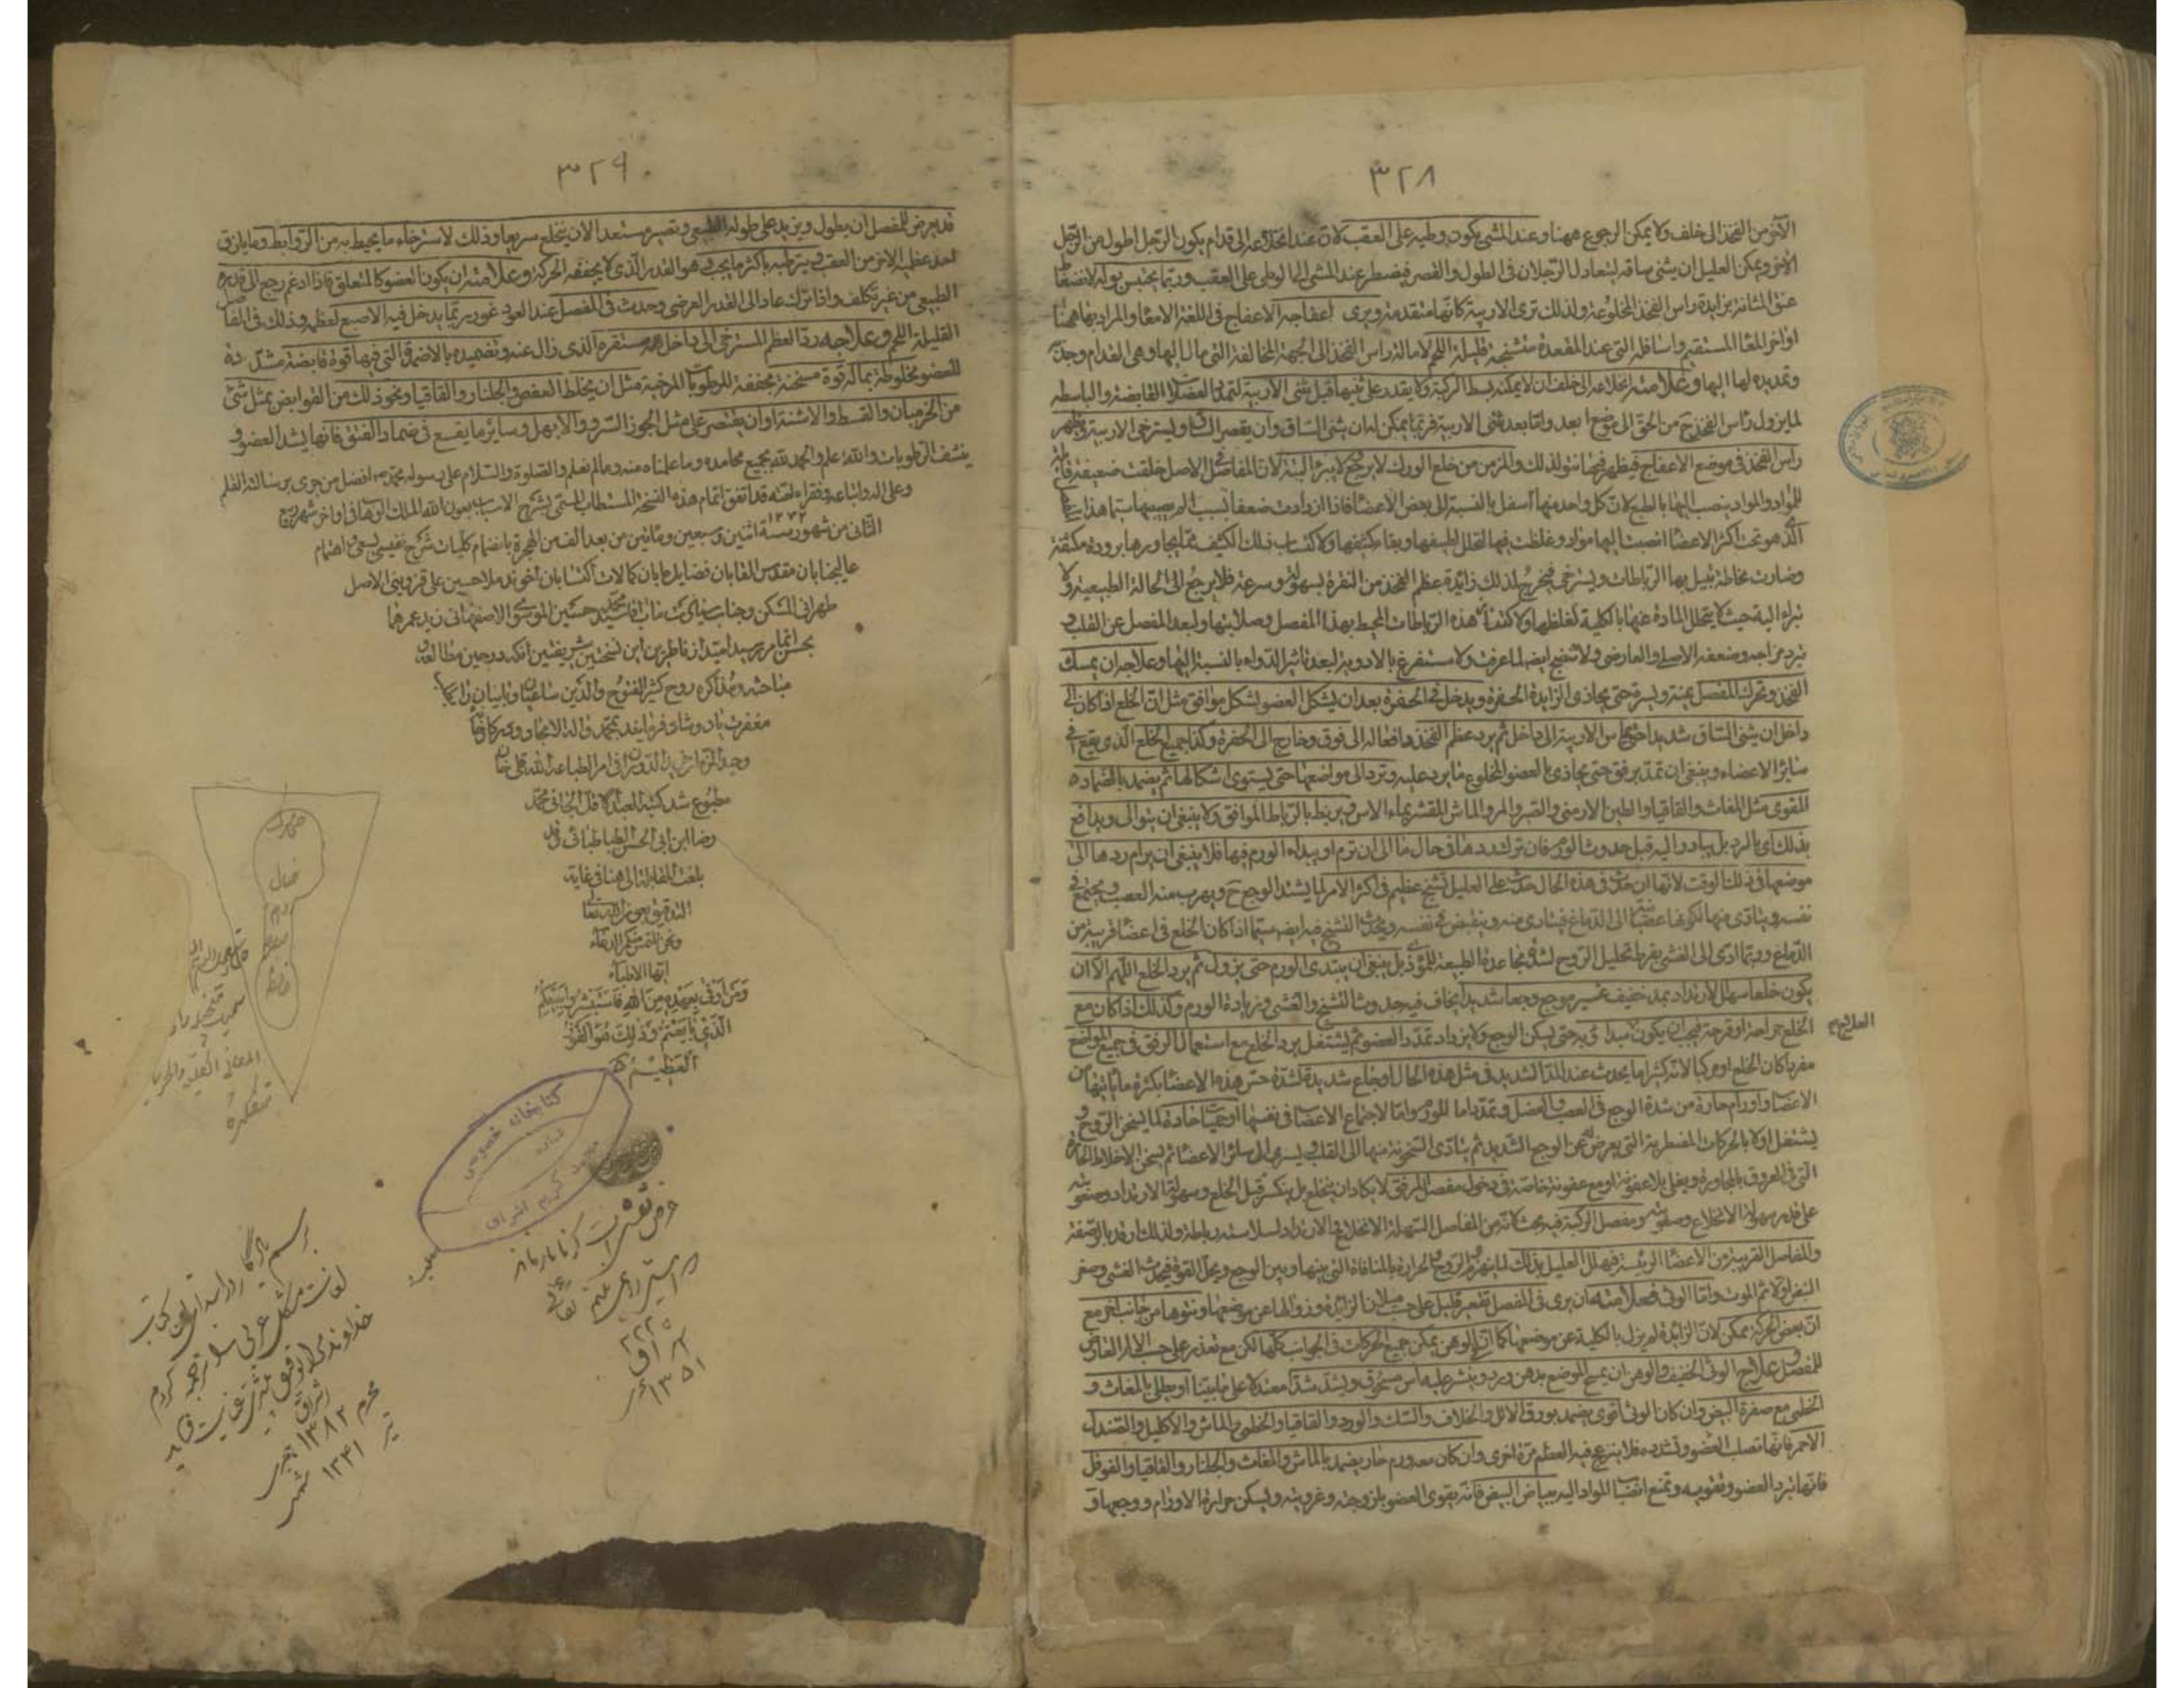 ٣٢٨
الآخر من الفخذ الى خلف ولا يمكن الرجوع ههنا وعند المشى يكون وطيه على العقب لان عند انخلاعه الى قدام يكون الرجل اطول من الرجل
الاخر ويمكن العليل ان يثنى ساقه ليتعادل الرجلان فى الطول والقصر فيضطر عند المشى الى الوطى على العقب وربما يحتبس بوله لانضغاط
عنق المثانة بزايدة راس الفخذ المخلوعة ولذلك ترى الاربية كانها متقدمة ويرى اعفاجه الاعفاج فى اللغة الامعا والمراد بها ههنا
اواخر المعا المستقيم واسافله التى عند المقعدة متشنجة قليلة اللحم لامالة راس الفخذ الى الجهة المخالفة التى مال اليها وهى القدام وجذبه
وتمديده لها اليها وعلامة انخلاعه الى خلف ان لا يمكنه بسط الركبة ولا يقدر على ثنيها قبل ثنى الاربية لتمدد العضلات القابضة والباسطة
لما يزول راس الفخذ ح من الحق الى موضع ابعد واما بعد ثنى الاربية فربما يمكن له ان يثنى الساق وان يقصر الساق ويسترخى الاربية ويظهر
راس الفخذ فى موضع الاعفاج فيظهر فيها نتو لذلك والمزمن من خلع الورك لا يرجع ولا يبرء البتة لان المفاصل فى الاصل خلقت ضعيفة قابلة
للمواد والمواد ينصب اليها بالطبع لان كل واحد منها اسفل بالنسبة الى بعض الاعضا فاذا ازدادت ضعفا بسبب الم يصيبها سيما هذا
الذى هو تحت اكثر الاعضا انصبت اليها مواد وغلظت فيها لتحلل لطيفها وبقاء كثيفها ولاكتساب ذلك الكثيف مما يجاورها برودة مكثفة
وصارت مخاطية تبتل بها الرباطات ويسترخى فيخرج لذلك زائدة عظم الفخذ من النقرة بسهولة وسرعة فلا يرجع الى الحالة الطبيعية ولا
يبرء البتة حيث لا يتحلل المادة عنها بالكلية لغلظها ولاكتناف هذه الرباطات المحيط بهذا المفصل وصلابتها ولبعد المفصل عن القلب و
برد مزاجه وضعفه الاصلى والعارضى ولا تنضج ايضا لما عرفت ولا تستفرغ بالادوية لبعد تاثير الدواء بالنسبة اليها وعلاجه ان يمسك
الفخذ وتحرك المفصل يمنة ويسرة حتى يحاذى الزايدة الحفرة ويدخل فى الحفرة بعد ان يشكل العضو بشكل موافق مثل ان الخلع اذا كان الى
داخل ان يثنى الساق شديدا حتى تماس الاربية الى داخل ثم يرد عظم الفخذ دافعا له الى فوق وخارج الى الحفرة وكذا جميع الخلع الذى يقع فى
سائر الاعضاء وينبغى ان تمد برفق حتى يحاذى بالعضو المخلوع ما يرد عليه وترد الى مواضعها حتى يستوى اشكالها ثم يضمد بالضماده
القوى مثل المغاث والقاقيا والطين الارمنى والصبر والمر والماش المقشر بماء الاس ويربط بالرباط الموافق ولا ينبغى ان يتوالى ويدافع
بذلك اى بالرد بل يبادر اليه قبل حدوث الورم فان ترك ردها فى حال ما الى ان ترم او يبدأ الورم فيها فلا ينبغى ان يرام ردها الى
موضعها فى ذلك الوقت لانها ان مدت فى هذه الحال حدث على العليل تشنج عظيم فى اكثر الامر لما يشتد الوجع ح ويهرب منه العصب ويجتمع فى
نفسه ويتادى منها لكونها عصبية الى الدماغ فيتادى منه وينقبض فى نفسه ويحدث التشنج منه ايضا سيما اذا كان الخلع فى اعضا قريبة من
الدماغ وربما ادى الى الغشى بفرط تحليل الروح لشدة مجاهدة الطبيعة للموذى بل ينبغى ان يبتدى الورم حتى يزول ثم يرد الخلع اللهم الا ان
يكون خلعا سهل الارتداد بمد خفيف غير موجع وجعا شديدا يخاف فيه حدوث التشنج والغشى وزيادة الورم وكذلك اذا كان مع
الخلع جراحة او قرحة فيجب ان يكون مبدا به حتى يسكن الوجع ولا يزداد تمدد العضو ثم يشتغل برد الخلع مع استعمال الرفق فى جميع المواضع
العلاج م
مفردا كان الخلع او مركبا لانه كثيرا ما يحدث عند المد الشديد فى مثل هذه الحال اوجاع شديدة لشدة حس هذه الاعضا بكثرة ما ياتيها من
الاعصاب واورام حارة من شدة الوجع فى العصب والعضل وتمدد اما للورم واما لاجتماع الاعصاب فى نفسها او حميات حادة لما يسخن الروح و
يشتعل اولا بالحركات المضطربة التى يعرض له عن الوجع الشديد ثم يتادى السخونة منها الى القلب ويسرى الى سائر الاعضا ثم يسخن الاخلاط الحارة
التى فى العروق بالمجاورة ويغلى بلا عفونة او مع عفونة خاصة فى دخول مفصل المرفق لا يكاد ان ينخلع بل ينكسر قبل الخلع وسهولة الارتداد وصعوبته
على قدر سهولة الانخلاع وصعوبته ومفصل الركبة فيه بحث كانه من المفاصل السهلة الانخلاع فى الارتداد لسلاسته ورباطه ولذلك ارتد بالوصفة
والمفاصل القريبة من الاعضا الرئيسة فيهلك العليل بذلك لما ينهزم الروح والحرارة بالمنافاة التى بينها وبين الوجع ويحل القوة فيحدث الغشى وصغر
النبض اولا ثم الموت واما الوثى فعلامته ان يرى فى المفصل تقعير قليل على حسب ميلان الزائدة وزوالها عن موضعها ونتوها من جانب اخر مع
ان بعض الحركة ممكن لان الزائدة لم يزل بالكلية عن موضعها كما ان فى الوهن يمكن جميع الحركات فى الجوانب كلها لكن مع تعذر على حسب الالم العارض
للمفصل وعلاج الوثى الخفيف والوهن ان يمسح الموضع بدهن ورد وينثر عليه اس مسحوق ويشد شدا معتدلا على ما بينا او يطلى بالمغاث و
الخطمى مع صفرة البيض وان كان الوثى اقوى يضمد بورق الاثل والخلاف والسك والورد والقاقيا والخطمى والماش والاكليل والصندل
الاحمر فانها تصلب العضو وتشدده فلا ينزعج فيه العظم مرة اخرى وان كان معه ورم حار يضمد بالماش والمغاث والجلنار والقاقيا والفوفل
فانها تبرد العضو وتقويه وتمنع انصباب المواد اليه ببياض البيض فانه يقوى العضو بلزوجته وغرويته ويسكن حرارة الاورام ووجعها و
٣٢٩
قد يعرض للمفصل ان يطول ويزيد على طوله الطبيعى وتصير مستعدا لان ينخلع سريعا وذلك لاسترخاء ما يحيط به من الروابط وما يلزق
احد عظميه الاخر من العقب ويترطبه باكثر مما يجب وهو القدر الذى لا يجففه الحركة وعلامته ان يكون العضو كالمتعلق فاذا ادغم رجع الى قدره
الطبيعى من غير تكلف واذا ترك عاد الى القدر العرضى وحدث فى المفصل عند العود غور ربما يدخل فيه الاصبع لعظمه وذلك فى المفاصل
القليلة اللحم وعلاجه رد العظم المسترخى الى داخل مستقره الذى زال عنه وتضميده بالاضمدة التى فيها قوة قابضة مشددة
للعضو مخلوطة بما له قوة مسخنة مجففة للرطوبات المرخية مثل ان يخلط العفص والجلنار والقاقيا ونحو ذلك من القوابض بمثل شئ
من الخزميان والقسط والاشنة او ان يقتصر على مثل الجوز السرو والابهل وسائر ما يقع فى ضماد الفتق فانها يشد العضو و
ينشف الرطوبات والله اعلم والحمد لله بجميع محامده وما علمناه منه وما لم نعلم والصلوة والسلام على رسوله محمد افضل من جرى برسالته القلم
وعلى اله واتباعه وفقراء امته قد اتفق اتمام هذه النسخة المستطاب المسمى بشرح الاسباب بعون الله الملك الوهاب فى اواخر شهر ربيع
الثانى من شهور سنة ١٢٧٢ اثنتين وسبعين ومائتين من بعد الف من الهجرة بانضمام كليات شرح نفيسى بسعى و اهتمام
عاليجنابان مقدس القابان فضايل مابان كمالات اكتسابان اخوند ملا حسين على قزوينى الاصل
طهرانى المسكن وجناب سيادت ماب اقا سيد حسين الموسوى الاصفهانى زيد عمرهما
بحسن اتمام رسيد اميد از ناظرين اين نسختين شريفتين انكه در حين مطالعه و
مباحثه ومذاكره روح كثير الفتوح والدين ساعيان و بانيان را بكلمه
مغفرت ياد و شاد فرمايند
وحيد الزمان فريد الدوران در امر الطباعة الله قلى خان
مطبوع شد كتبه العبد الاقل الجانى محمد
رضا ابن ابى الحسن الطباطبائى وقد
بلغت المقابلة الى هنا فى غاية
التدقيق بعون الله تعالى
ونحن نلتمس منكم الدعاء
ايها الاطباء
وَمَنْ اَوْفى بِعَهْدِهِ مِنَ اللهِ فَاسْتَبْشِرُوا بِبَيْعِكُمُ
الَّذى بايَعْتُمْ بِهِ وَذلِكَ هُوَ الْفَوْزُ
الْعَظيمُ
كتابخانه خصوصى
شماره
محمد كريم اشراق
خيال
وهم
حافظه
غرض نقشى است كز ما باز ماند
١٣٥١
برسم يادگار در ابتداى اين كتاب
لغات مشكل عربى را ترجمه كردم
خداوند مرا توفيق بيشترى عنايت فرمايد
اشراق
محرم ١٣٨٢ هجرى
تير ١٣٤١ شمسى